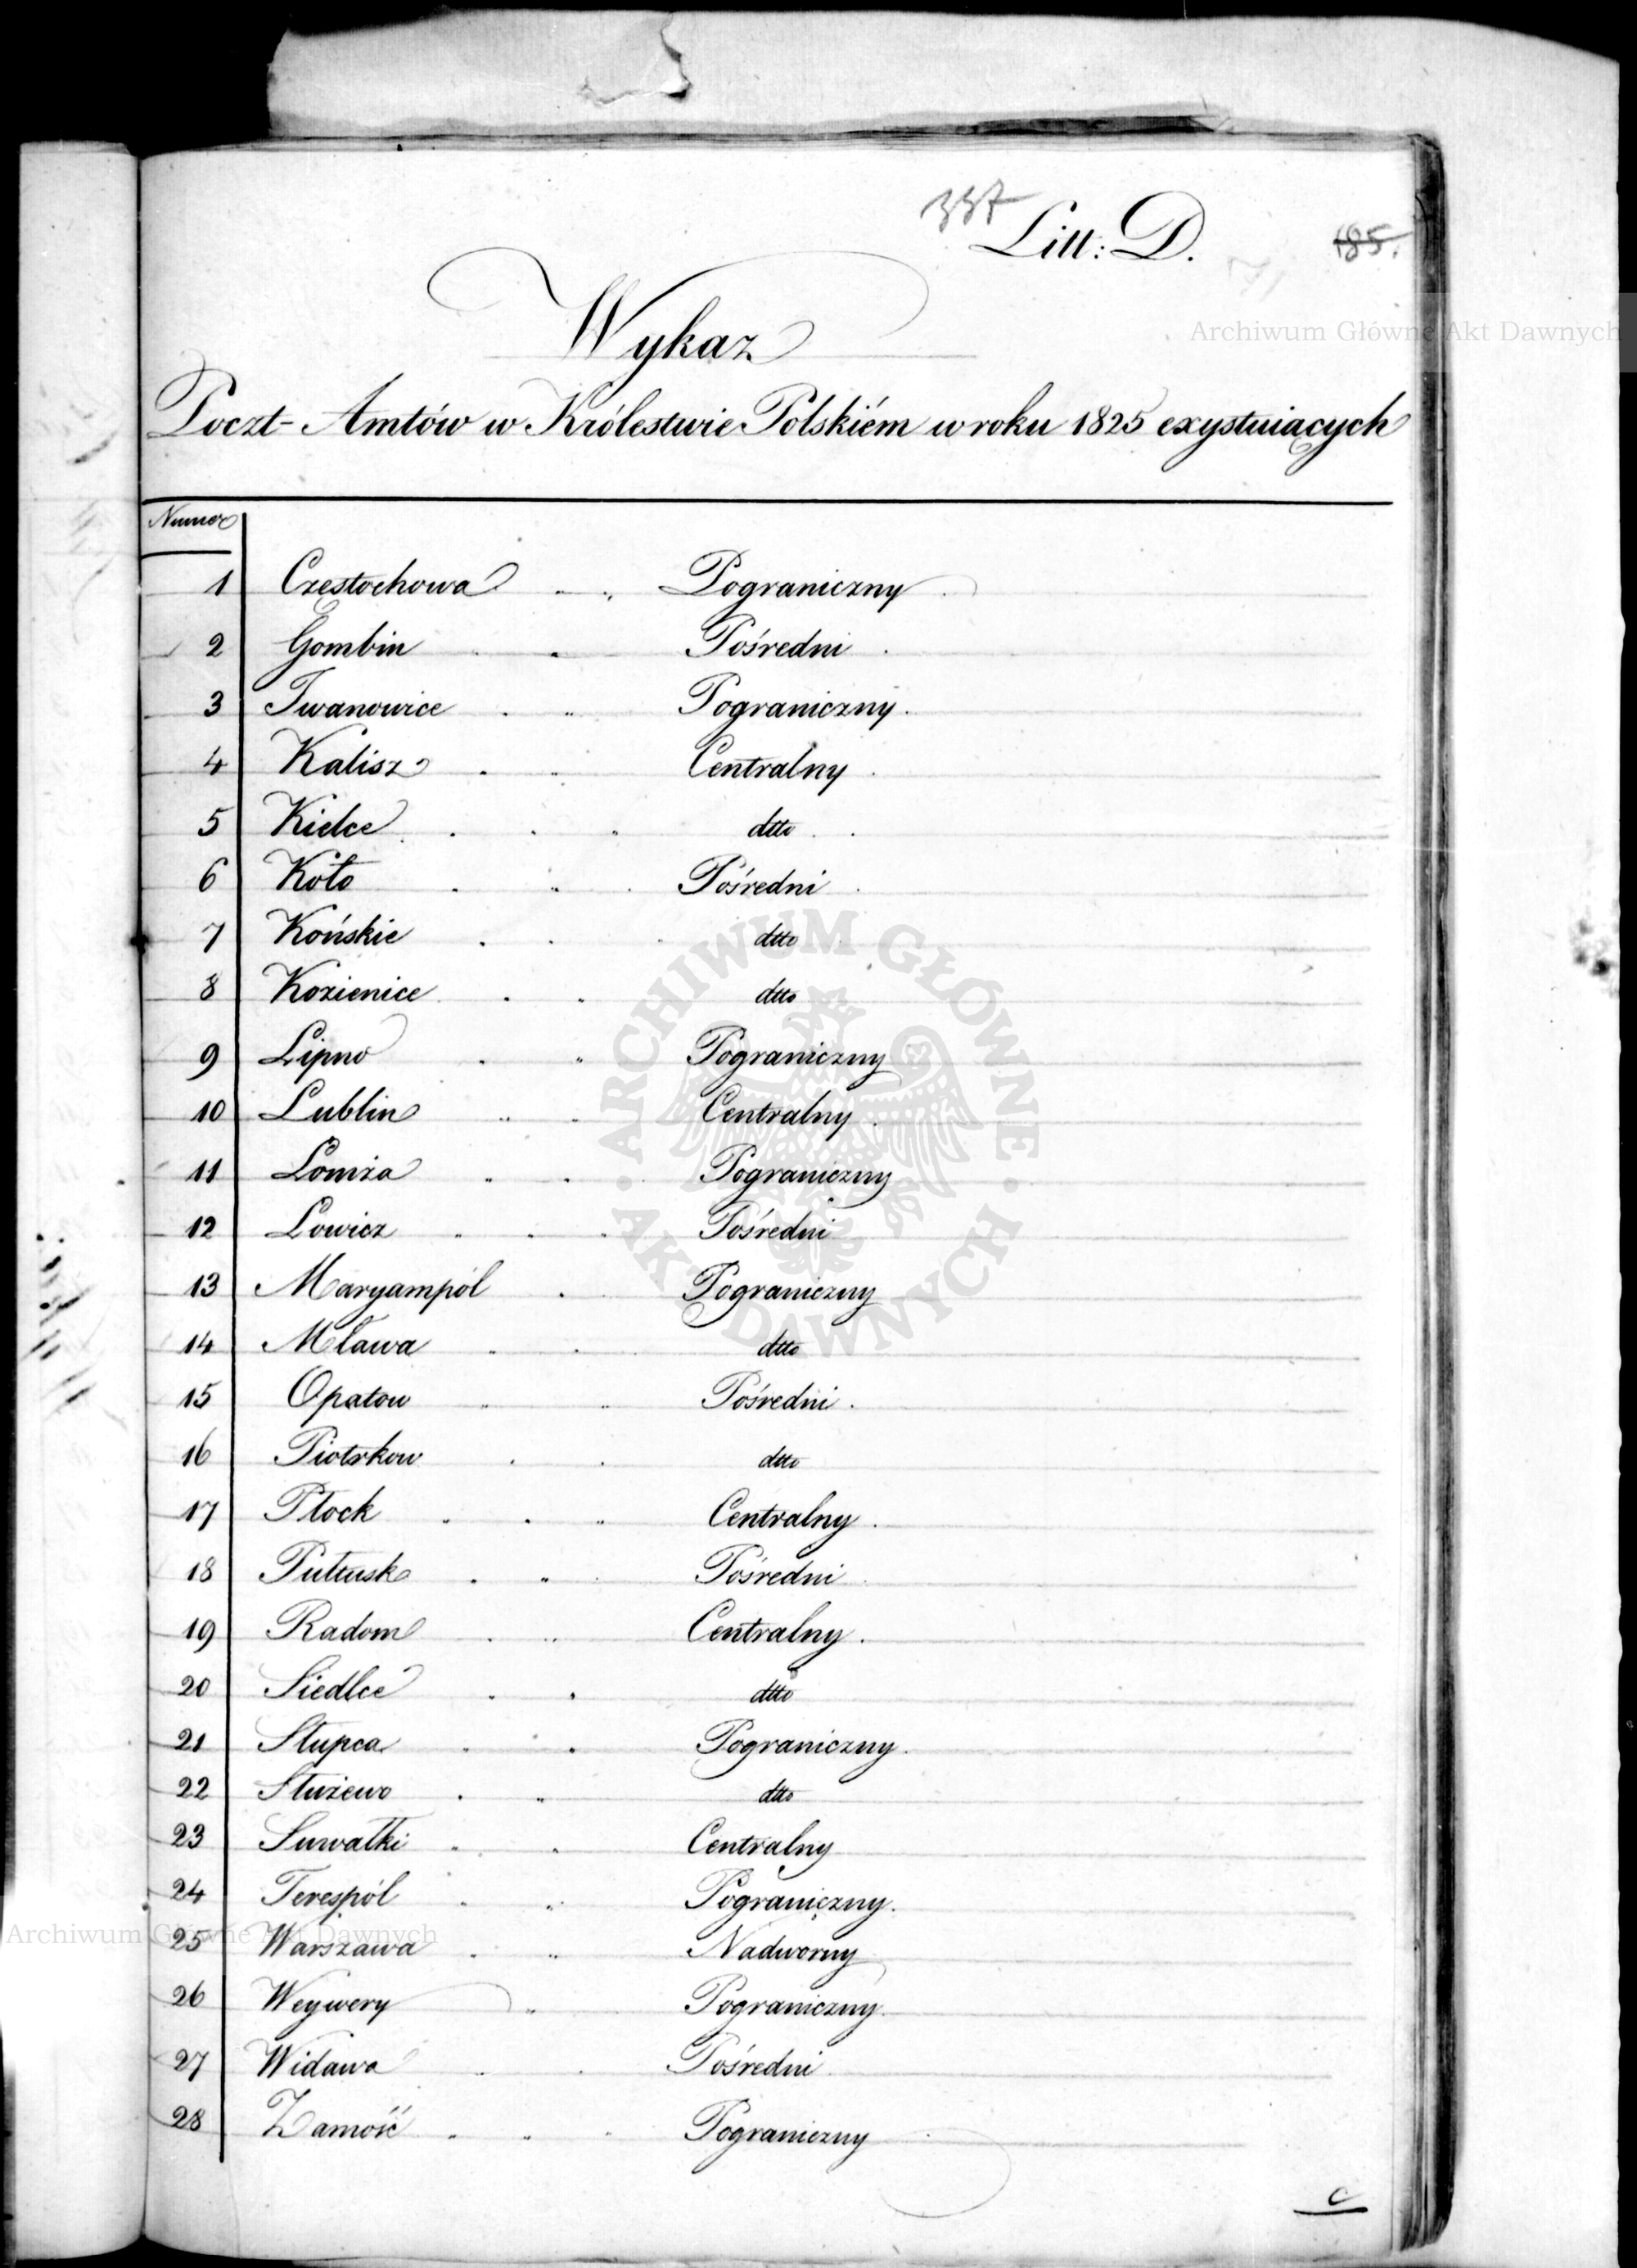 337
Litt: D.
185.
Archiwum Główne Akt Dawnych
Wykaz
Poczt-Amtów w Królestwie Polskiém w roku 1825 exystuiących
Numer
1 Częstochowa Pograniczny
2 Gombin Pośredni
3 Iwanowice Pograniczny.
4 Kalisz Centralny
5 Kielce dtto
6 Koło Pośredni
7 Końskie dtto
8 Kozienice dtto
9 Lipno Pograniczny
10 Lublin Centralny
11 Lomża Pograniczny
12 Lowicz Pośredni
13 Maryampól Pograniczny
14 Mława dtto
15 Opatow Pośredni.
16 Piotrkow dtto
17 Płock Centralny.
18 Pułtusk Pośredni
19 Radom Centralny.
20 Siedlce dtto
21 Słupca Pograniczny.
22 Służewo dtto
23 Suwałki Centralny
24 Terespól Pograniczny.
25 Warszawa Nadworny
26 Weywery Pograniczny.
27 Widawa Pośredni
28 Zamość Pograniczny
ARCHIWUM GŁÓWNE AKT DAWNYCH
Archiwum Główne Akt Dawnych